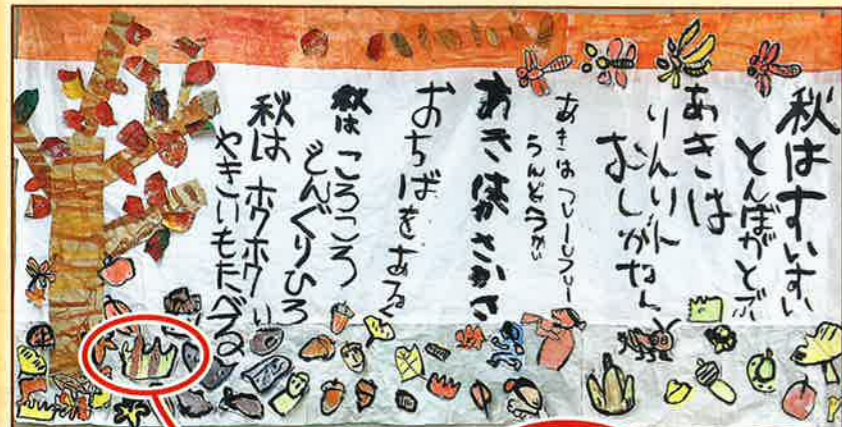 秋はすいすい
とんぼがとぶ
あきは
りんりん
むしがなく
あきはフレーフレー
うんどうかい
あきはかさかさ
おちばをある
秋はころころ
どんぐりひろい
秋はホクホク
やきいもたべる